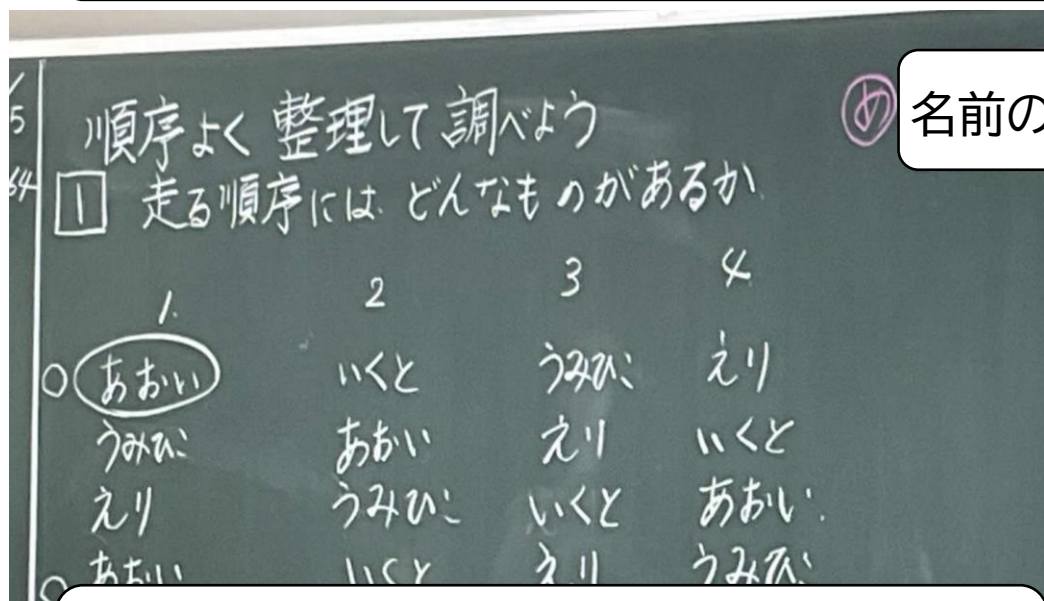 5
64
順序よく整理して調べよう
1 走る順序には、どんなものがあるか
1. 2 3 4
○ あおい いくと うみひこ えり
うみひこ あおい えり いくと
えり うみひこ いくと あおい
○ あおい いくと えり うみひこ
め 名前の